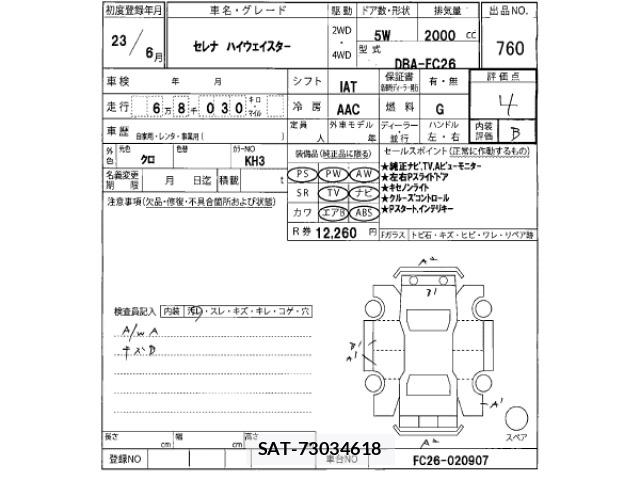 初度登録年月 車名・グレード 駆動 ドア数・形状 排気量 出品NO.
23 / 6月 セレナ ハイウェイスター 2WD ・ 4WD 5W 2000 cc 760
型式 DBA-FC26
車検 年 月 シフト IAT 保証書 有・無 評価点
走行 6万8千030 キロ マイル 冷房 AAC 燃料 G 4
車歴 自家用・レンタ・事業用( ) 定員 人 外車モデル 年 ディーラー・並行 ハンドル 左・右 内装評価 B
外色 元色 クロ 色替 カラーNO KH3 装備品(純正品に限る) セールスポイント(正常に作動するもの)
名義変更期限 月 日迄 積載 t PS PW AW ★純正ナビ,TV,Aビューモニター
★左右Pスライドドア
注意事項(欠品・修復・不具合箇所および状態) SR TV ナビ ★キセノンライト
★クルーズコントロール
カワ エアB ABS ★Pスタート,インテリキー
R券 12,260 円 Fガラス トビ石・キズ・ヒビ・ワレ・リペア跡
A2
検査員記入 内装 汚レ・スレ・キズ・キレ・コゲ・穴
A/W A
キズB
A1
スペア
A2
長さ cm 幅 cm 高さ
SAT-73034618
登録NO 車台NO FC26-020907